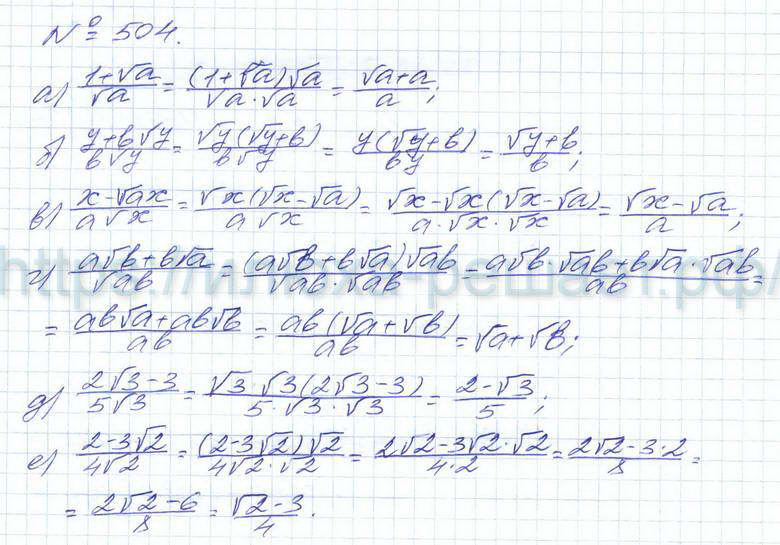 № 504.
а) (1+√a)/√a = ((1+√a)√a)/(√a·√a) = (√a+a)/a;
б) (y+b√y)/(b√y) = (√y(√y+b))/(b√y) = (y(√y+b))/(by) = (√y+b)/b;
в) (x-√ax)/(a√x) = (√x(√x-√a))/(a√x) = (√x-√x(√x-√a))/(a·√x·√x) = (√x-√a)/a;
г) (a√b+b√a)/√ab = ((a√b+b√a)√ab)/(√ab·√ab) = (a√b·√ab+b√a·√ab)/ab =
= (ab√a+ab√b)/ab = (ab(√a+√b))/ab = √a+√b;
д) (2√3-3)/(5√3) = (√3·√3(2√3-3))/(5·√3·√3) = (2-√3)/5;
е) (2-3√2)/(4√2) = ((2-3√2)√2)/(4√2·√2) = (2√2-3√2·√2)/(4·2) = (2√2-3·2)/8 =
= (2√2-6)/8 = (√2-3)/4.